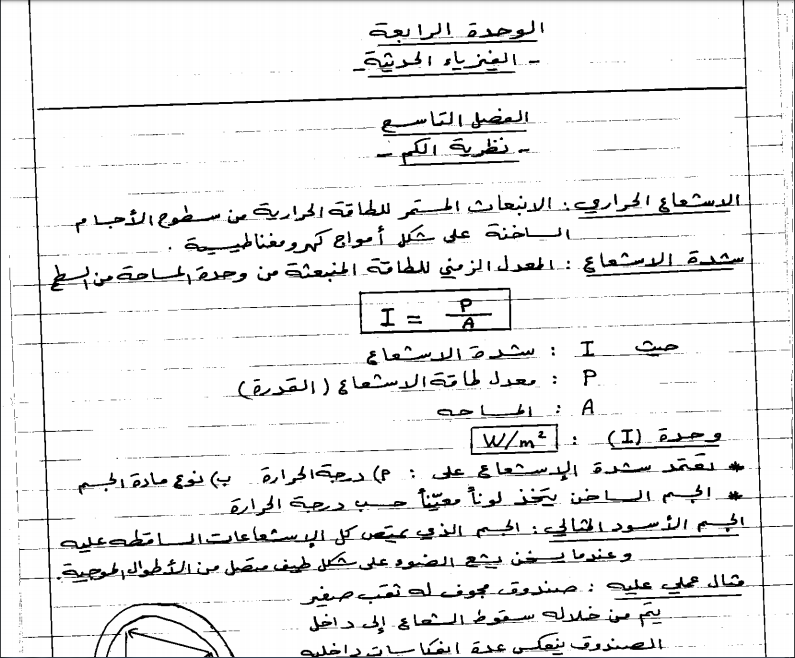 الوحدة الرابعة
- الفيزياء الحديثة -
الفصل التاسع
- نظرية الكم -
الاشعاع الحراري : الانبعاث المستمر للطاقة الحرارية من سطوح الأجسام
الساخنة على شكل أمواج كهرومغناطيسية .
شدة الاشعاع : المعدل الزمني للطاقة المنبعثة من وحدة المساحة من السطح
I = P/A
حيث I : شدة الاشعاع
P : معدل طاقة الاشعاع (القدرة)
A : المساحه
وحدة (I) : W/m²
* تعتمد شدة الإشعاع على : م) درجة الحرارة ب) نوع مادة الجسم
* الجسم الساخن يتخذ لوناً معيّناً حسب درجة الحرارة
الجسم الأسود المثالي : الجسم الذي يمتص كل الإشعاعات الساقطه عليه
وعندما يسخن يشع الضوء على شكل طيف متصل من الأطوال الموجية.
مثال عملي عليه : صندوق مجوف له ثقب صغير
يتم من خلاله سقوط الشعاع إلى داخل
الصندوق ينعكس عدة انعكاسات داخليه